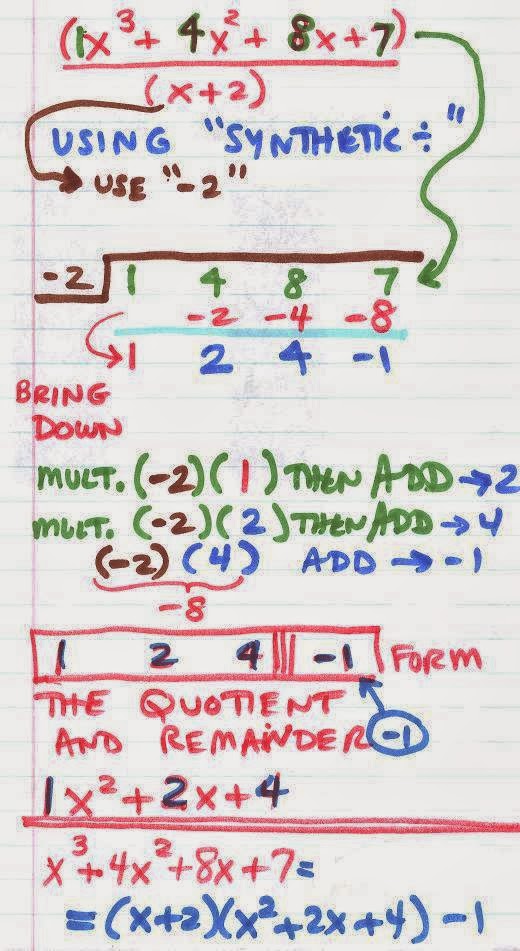 (1x³ + 4x² + 8x + 7)
(x+2)
USING "SYNTHETIC ÷"
USE "-2"
-2 1 4 8 7
-2 -4 -8
1 2 4 -1
BRING
DOWN
MULT. (-2)(1) THEN ADD → 2
MULT. (-2)(2) THEN ADD → 4
(-2)(4) ADD → -1
-8
1 2 4 ||| -1 FORM
THE QUOTIENT
AND REMAINDER -1
1x² + 2x + 4
x³+4x²+8x+7=
=(x+2)(x²+2x+4)-1